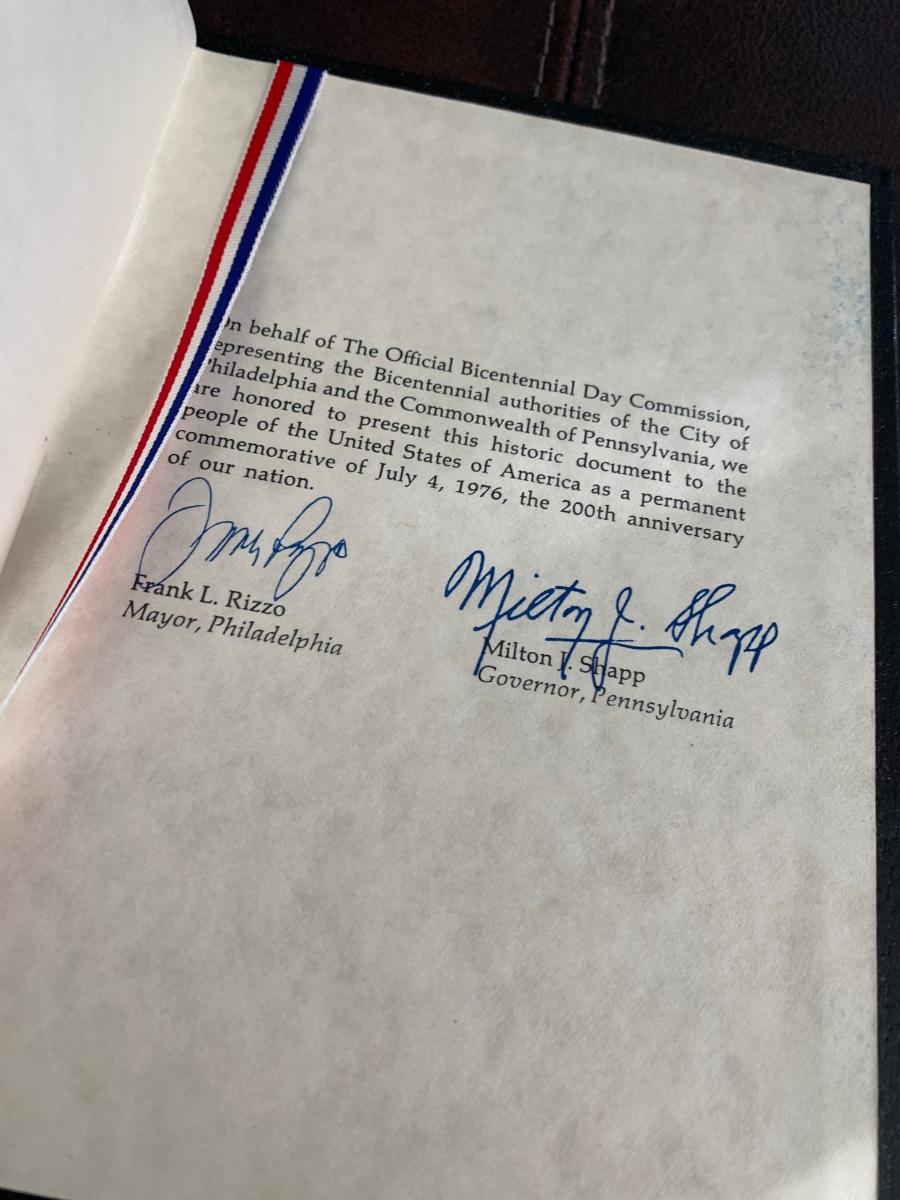 On behalf of The Official Bicentennial Day Commission,
epresenting the Bicentennial authorities of the City of
Philadelphia and the Commonwealth of Pennsylvania, we
are honored to present this historic document to the
people of the United States of America as a permanent
commemorative of July 4, 1976, the 200th anniversary
of our nation.
Frank Rizzo
Milton J. Shapp
Frank L. Rizzo
Mayor, Philadelphia
Milton J. Shapp
Governor, Pennsylvania